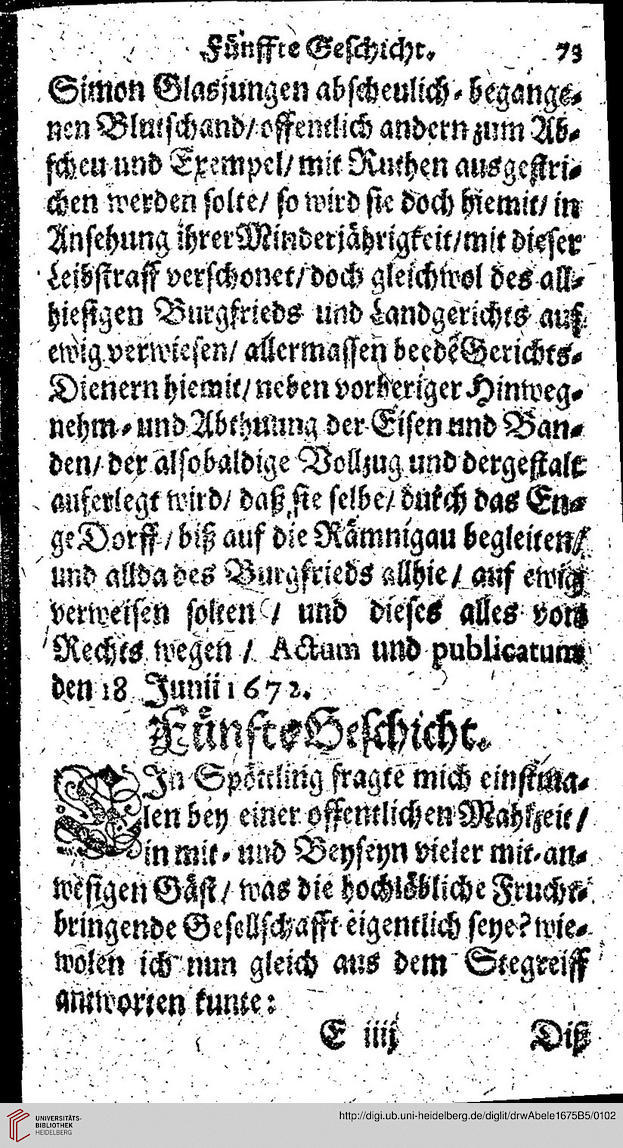 Fünffte Geschicht. 73
Simon Glasjungen abscheulich-begange-
nen Blutschand/ offentlich andern zum Ab-
scheu und Exempel/ mit Ruthen ausgestri-
chen werden solte/ so wird sie doch hiemit/ in
Ansehung ihrer Minderjährigkeit/ mit dieser
Leibstraff verschonet/ doch gleichwol des all-
hiesigen Burgfrieds und Landgerichts auf
ewig verwiesen/ allermassen beedē Gerichts-
Dienern hiemit/ neben vorheriger Hinweg-
nehm- und Abthuung der Eisen und Ban-
den/ der alsobaldige Vollzug und dergestalt
auferlegt wird/ daß sie selbe/ durch das En-
ge Dorff/ biß auf die Rämnigau begleiten/
und allda des Burgfrieds allhie/ auf ewig
verweisen solten/ und dieses alles von
Rechts wegen/ Actum und publicatum
den 18 Junii 1672.
Fünfte Geschicht.
EIn Spöttling fragte mich einsma-
len bey einer offentlichen Mahlzeit/
in mit- und Beyseyn vieler mit-an-
wesigen Gäst/ was die hochlöbliche Frucht-
bringende Gesellschafft eigentlich seye? wie-
wolen ich nun gleich aus dem Stegreiff
antworten kunte:
E iiij Diß
UNIVERSITÄTS-
BIBLIOTHEK
HEIDELBERG
http://digi.ub.uni-heidelberg.de/diglit/drwAbele1675B5/0102